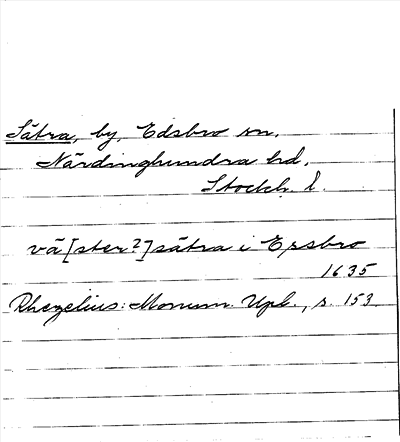 Sätra, by, Edsbro sn.
Närdinghundra hd.
Stockh. l.
vä[ster?]sätra i Ersbro
1635
Rhezelius: Monum. Upl., s. 153